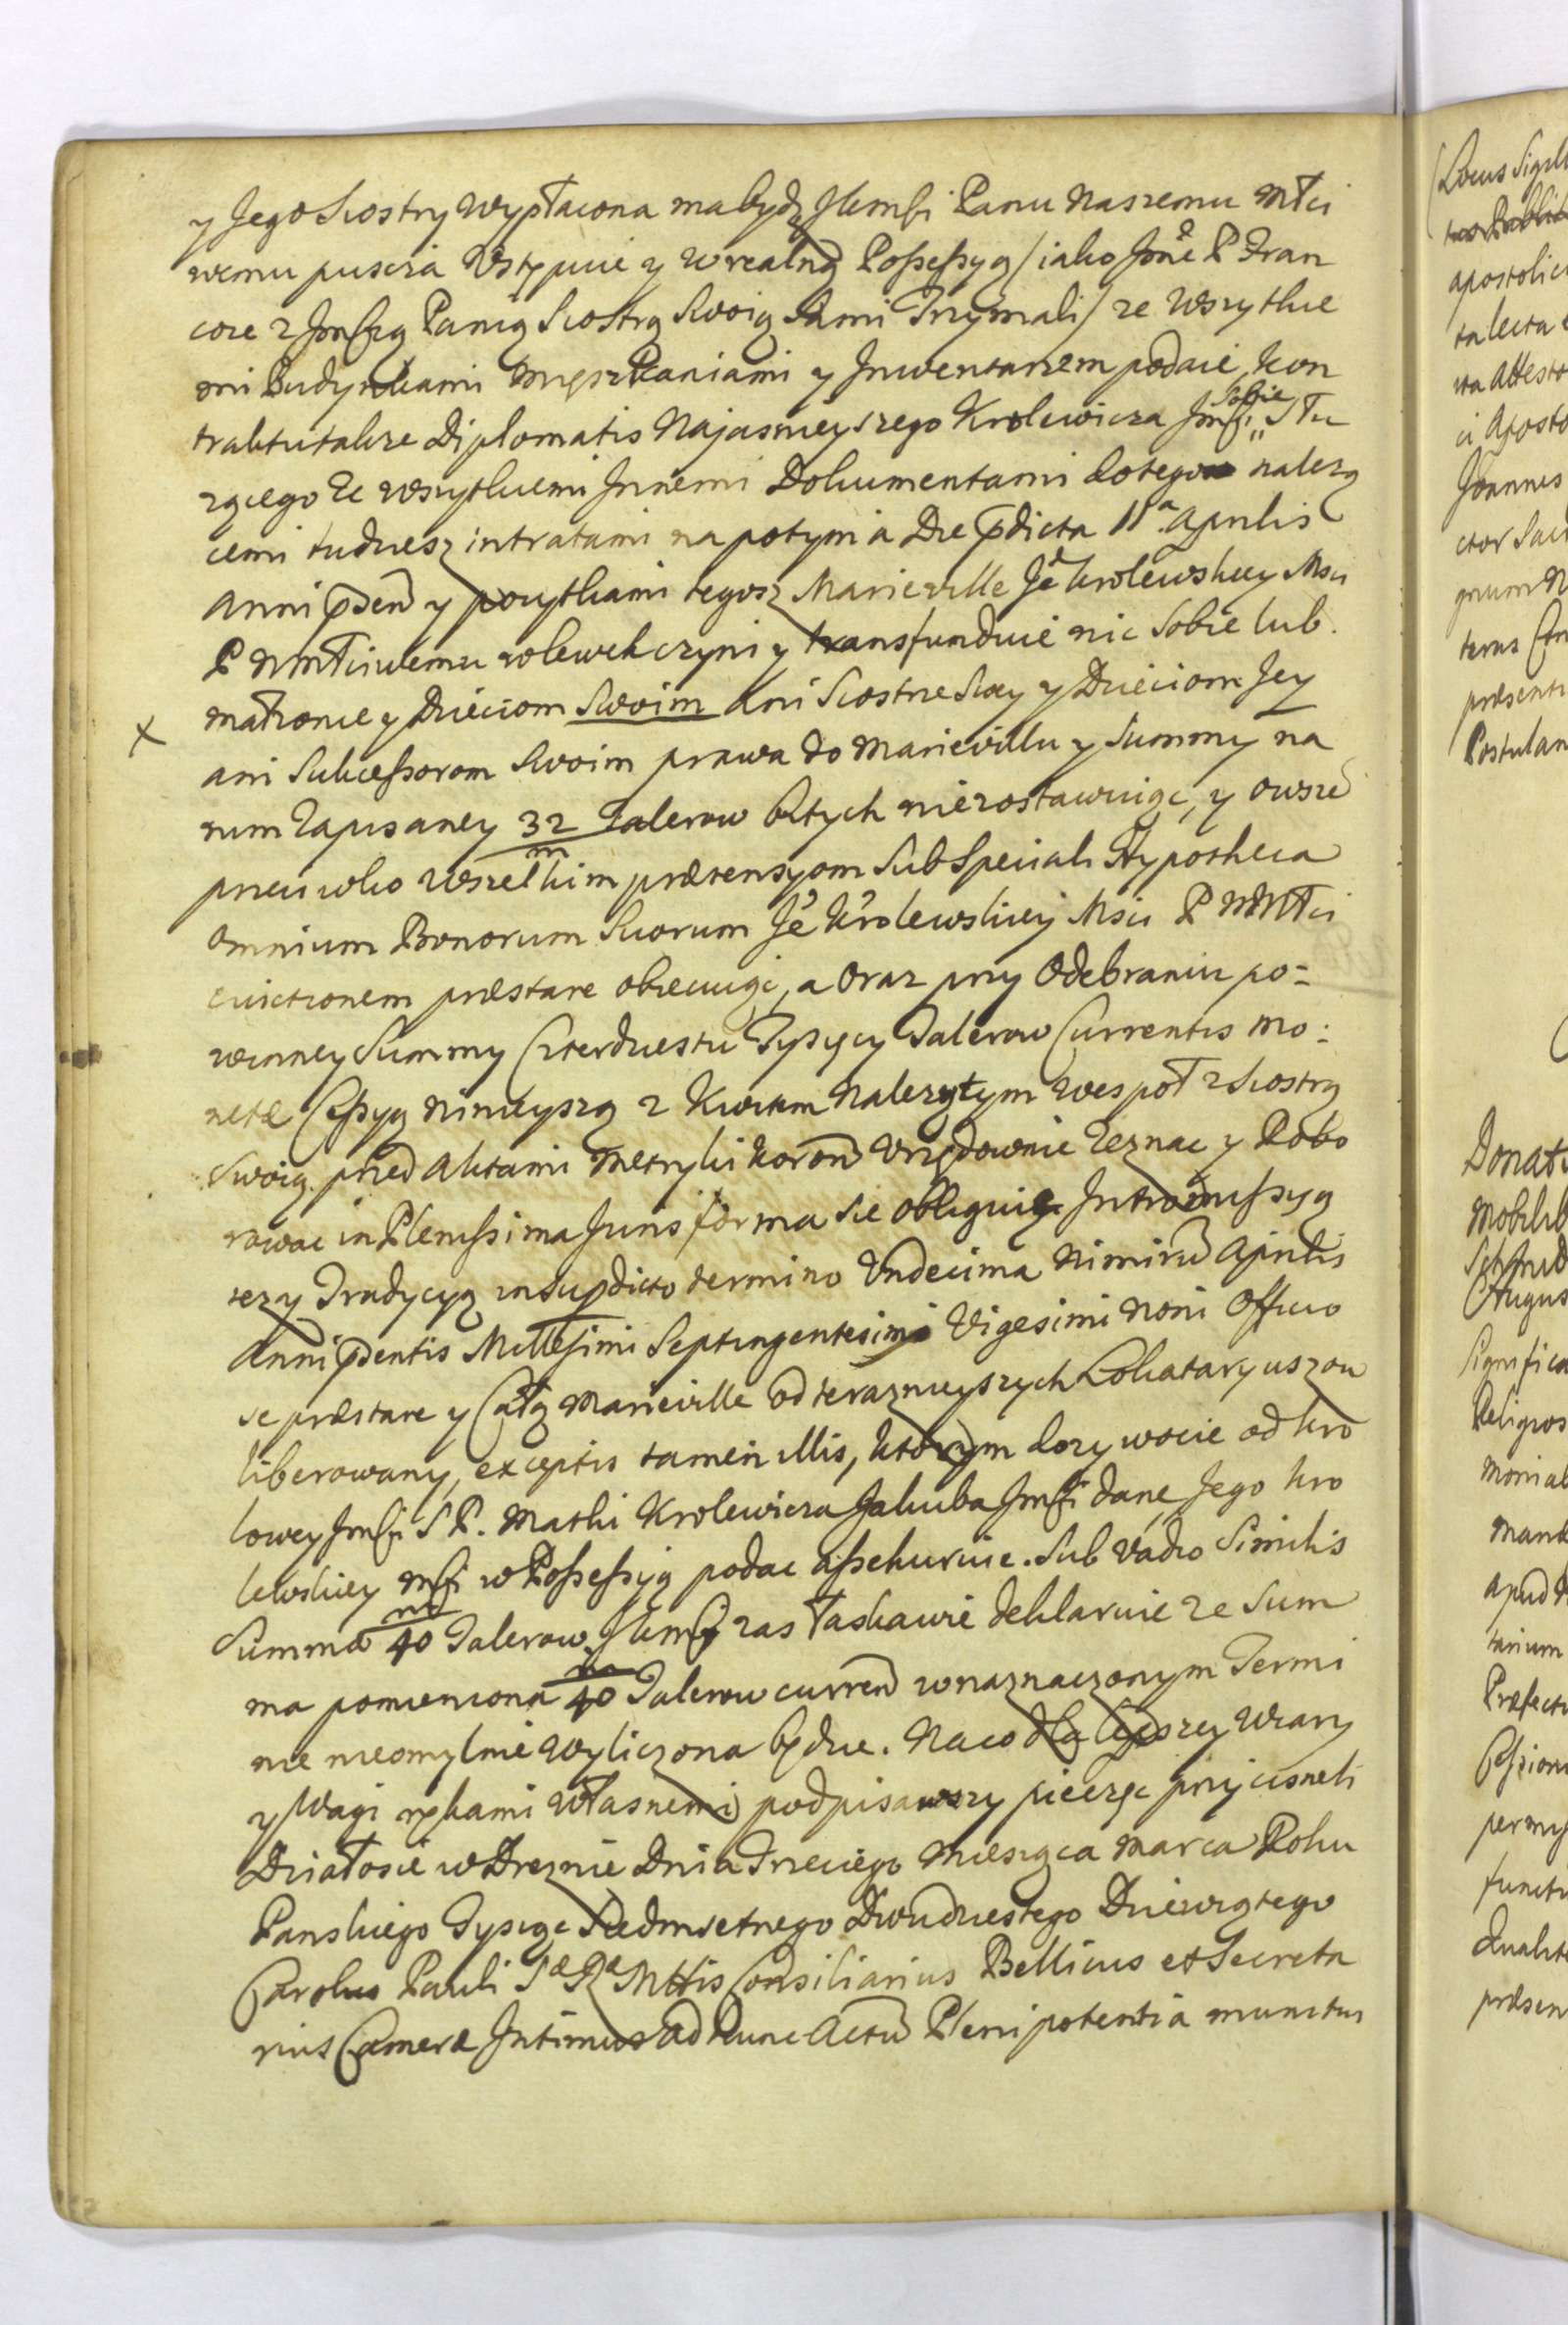 y Jego Siostry wypłacona ma bydz JKmsci Panu Naszemu Młci
wemu puscza Ustępuie y w realną Possessyą / iako Jme P Fran
coze z Jmscią Panią Siostrą Swoią Sami Trzymali / ze wszytkie
mi Budynkami Mięszkaniami y Inwentarzem podaie, kon
trakt także Diplomatis Najasnieyszego Krolewicza Jmsci Sobie Słu
zącego Ze wszytkiemi Innemi Dokumentami do tego nalezą
cemi tudziesz intratami na potym a Die pdicta 11a Aprilis
Anni pden y pozytkami tegosz Marieville Je Krolewskiey Msci
P NMłciwemu wlewek czyni y transfunduie nic Sobie lub
Małzonce y Dzieciom Swoim Ani Siostrze Swey y Dzieciom Jey
X
ani Sukcessorom Swoim prawa do Marievillu y Summy na
nim Zapisaney 32 m Talerow bitych niezostawuiąc, y owsze
przeciwko wszelkim prætensyom Sub Speciali Hypotheca
Omnium Bonorum Suorum Je Krolewskiey Msci P NMłci
evictionem præstare obiecuiąc, a Oraz przy Odebraniu po=
winney Summy Czterdziestu Tysięcy Talerow Currentis Mo:
netæ Cessyą ninieyszą z Kwitem Nalezytym wespoł z Siostrą
Swoią przed Aktami Metryki Koron Urzędownie Zeznac y Robo
rowac in Plenissima Juris forma Sie obliguie Intromissyą
tezy Tradycyą in Supdicto termino Undecima Nimirū Aprilis
Anni pdentis Millesimi Septingentesimi Vigesimi Noni Officio
se præstare y Całą Marieville od terazniejszych Lokataryuszow
liberowaną, exceptis tamen illis, ktorym dozywocie od Kro
lowey Jmsci S P. Matki Krolewicza Jakuba Jmsci dane, Jego Kro
lewskiey Msci w Possessyą podac assekuruie. Sub Vadio Similis
Summæ 40 m Talerow, JKmsc zas łaskawie deklaruie ze Sum
ma pomieniona 40 m Talerow curren w naznaczonym Termi
nie nieomylnie wyliczona będzie. Na co dla lepszey Wiary
y Wagi rękami własnemi podpisawszy pieczęc przycisneli
Działosie w Dreznie Dnia Trzeciego Miesiąca Marca Roku
Panskiego Tysiąc Siedmsetnego Dwudziestego Dziewiątego
Carolus Pauli Sæ Ræ Mttis Consiliarius Bellicus et Secreta
rius Cameræ Intimus ad hunc Actū Plenipotentia munitus
(Locus Sigill
apostolic
ta lecta
Joannes
ctor Sac
præsenti
Postulan
Donat
Mobilib
August
Significa
Religios
Monial
apud
tarium
Præfect
functi
Qualit
præsen